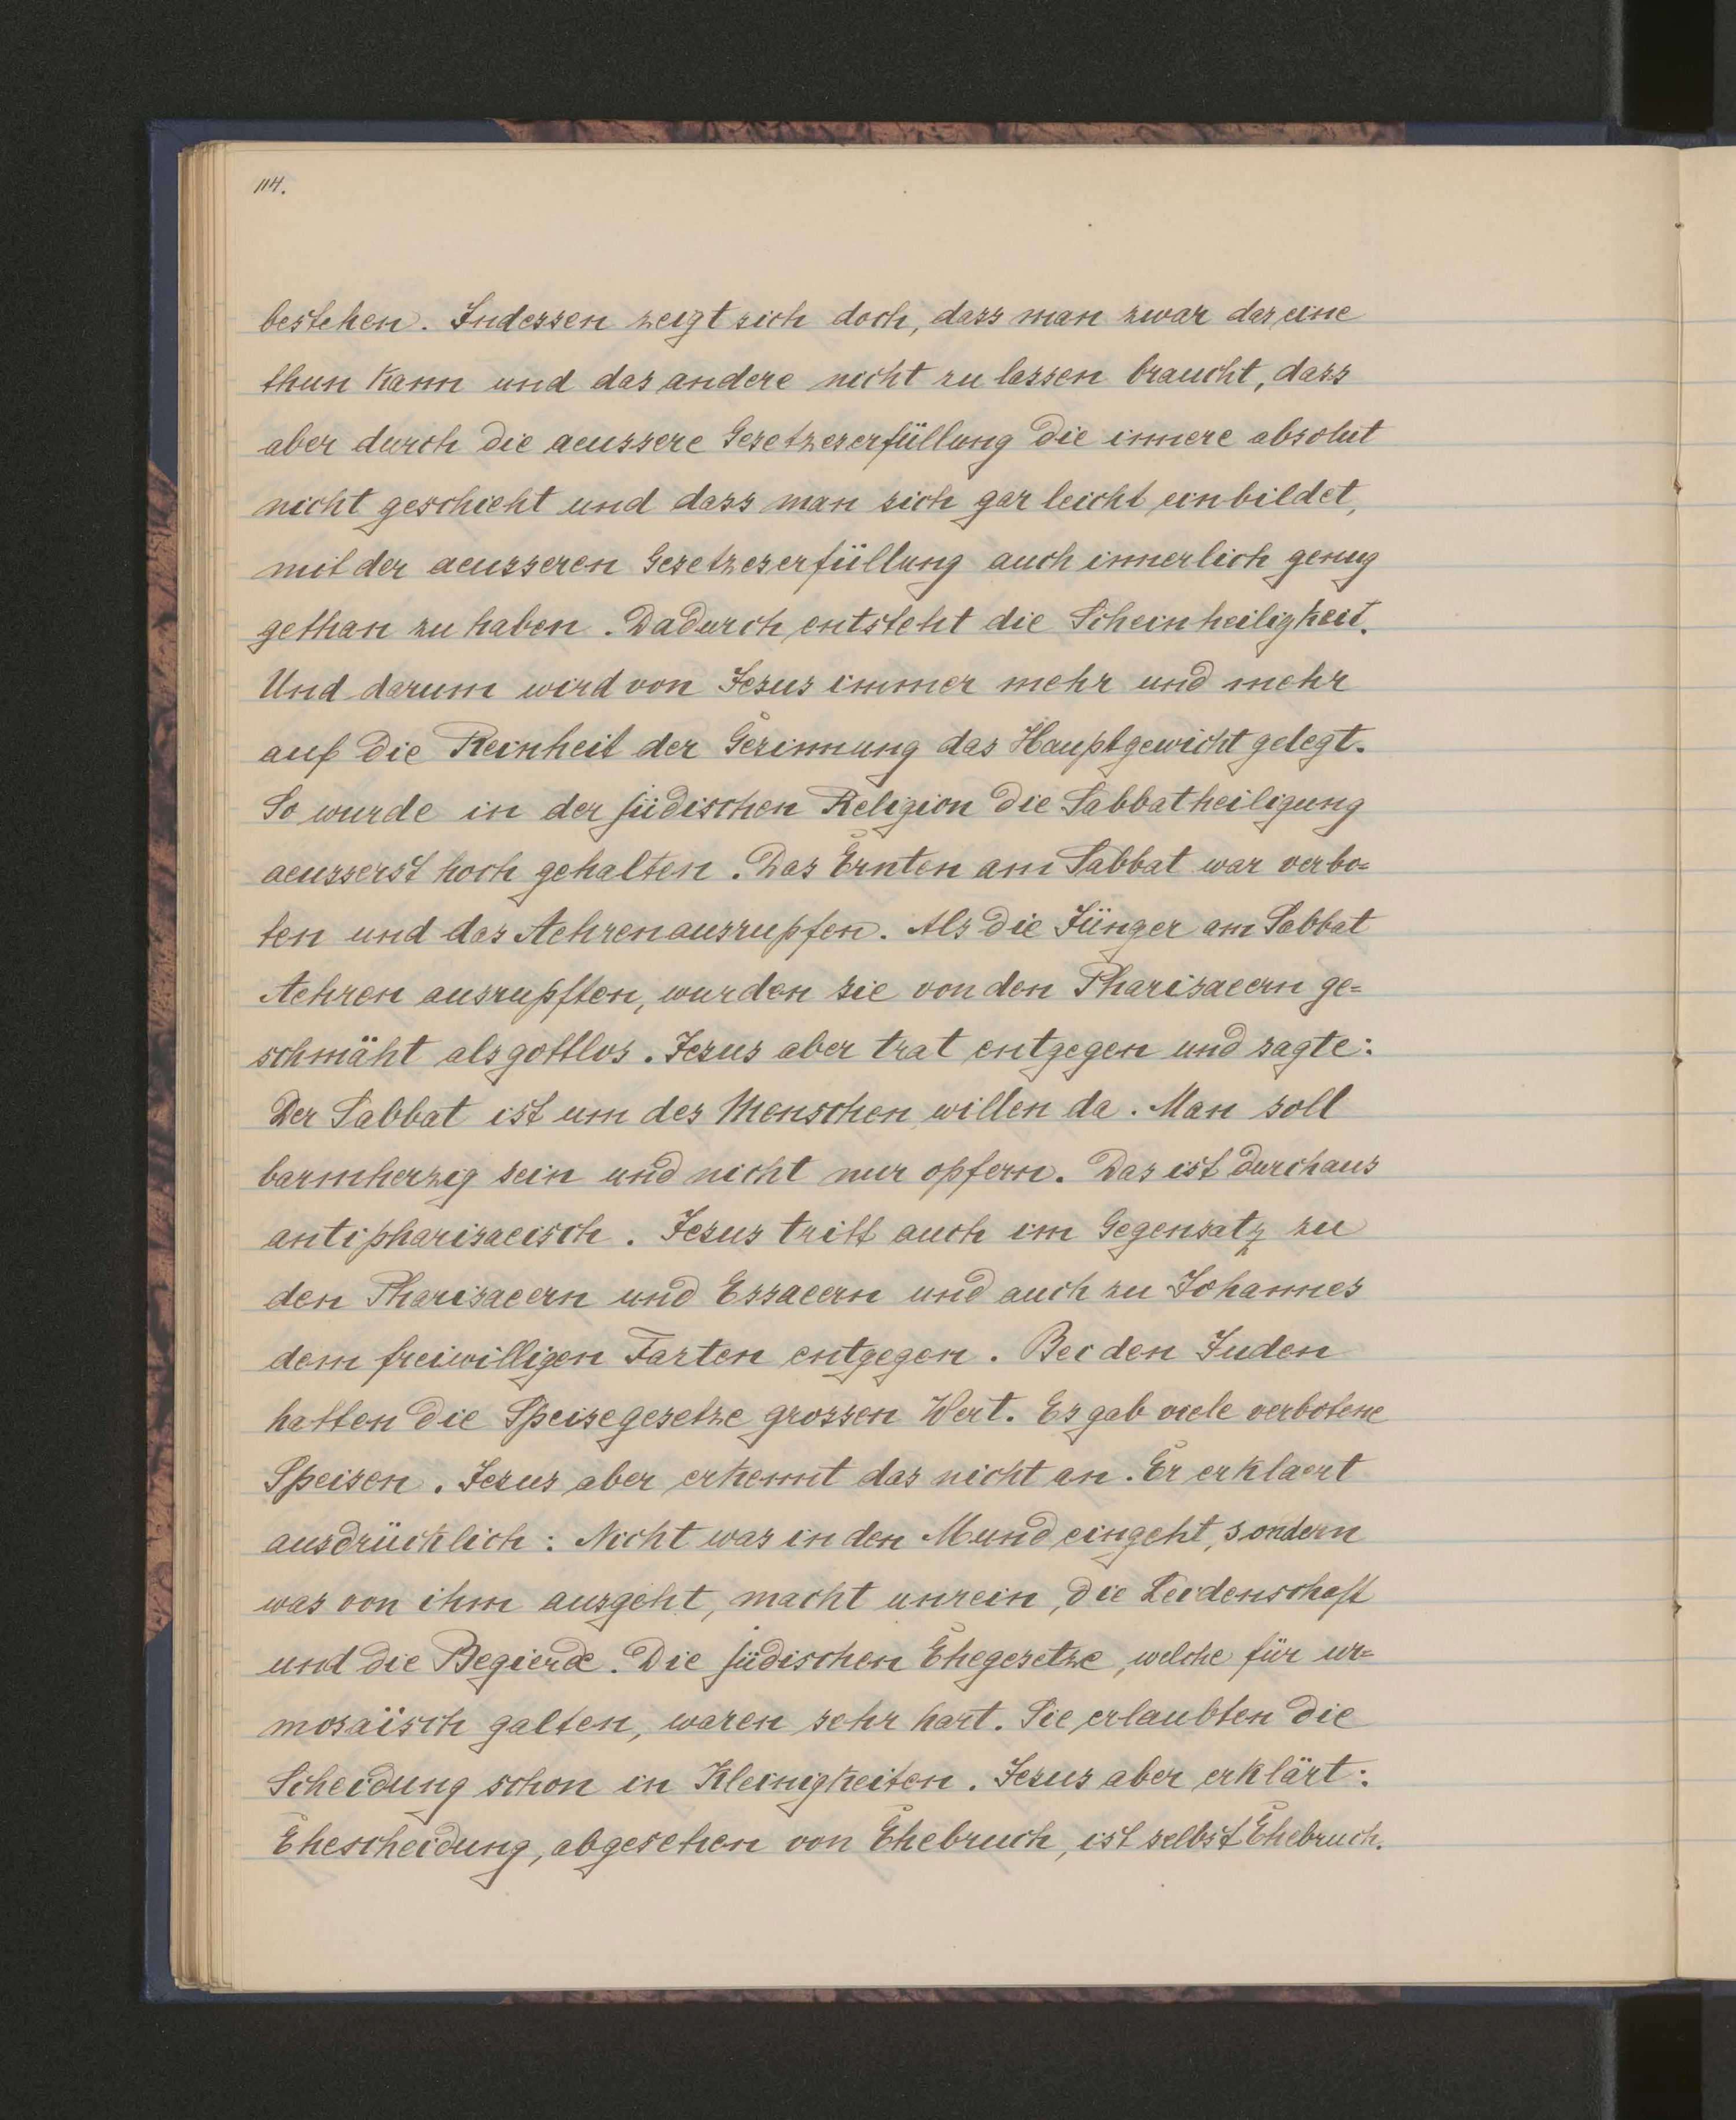 114.
bestehen. Indessen zeigt sich doch, dass man zwar das eine
thun kann und das andere nicht zu lassen braucht, dass
aber durch die aeussere Gesetzeserfüllung die innere absolut
nicht geschieht und dass man sich gar leicht einbildet,
mit der aeusseren Gesetzeserfüllung auch innerlich genug
gethan zu haben. Dadurch entsteht die Scheinheiligkeit.
Und darum wird von Jesus immer mehr und mehr
auf die Reinheit der Gesinnung das Hauptgewicht gelegt.
So wurde in der jüdischen Religion die Sabbatheiligung
aeusserst hoch gehalten. Das Ernten am Sabbat war verbo=
ten und das Aehrenausrupfen. Als die Jünger am Sabbat
Aehren ausrupften, wurden sie von den Pharisaeern ge=
schmäht als gottlos. Jesus aber trat entgegen und sagte:
Der Sabbat ist um des Menschen willen da. Man soll
barmherzig sein und nicht nur opfern. Das ist durchaus
antipharisaeisch. Jesus tritt auch im Gegensatz zu
den Pharisaeern und Essaeern und auch zu Johannes
dem freiwilligen Fasten entgegen. Bei den Juden
hatten die Speisegesetze grossen Wert. Es gab viele verbotene
Speisen. Jesus aber erkennt das nicht an. Er erklaert
ausdrücklich: Nicht was in den Mund eingeht, sondern
was von ihm ausgeht, macht unrein, die Leidenschaft
und die Begierde. Die jüdischen Ehegesetze, welche für ur=
mosaïsch galten, waren sehr hart. Sie erlaubten die
Scheidung schon in Kleinigkeiten. Jesus aber erklärt:
Ehescheidung, abgesehen von Ehebruch, ist selbst Ehebruch.